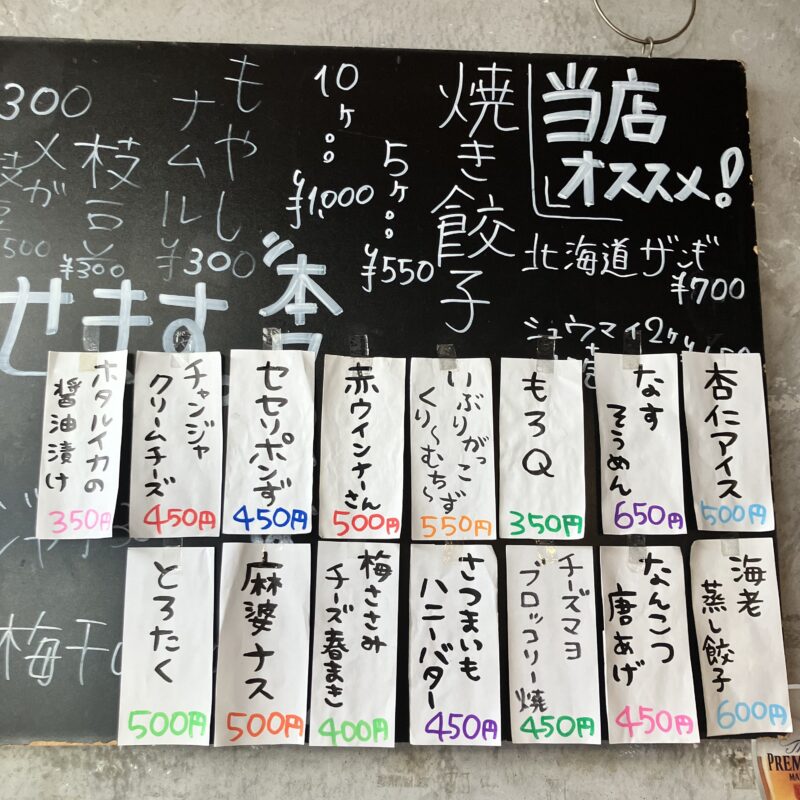 当店
オススメ!
焼き餃子
5ヶ
¥550
10ヶ
¥1,000
北海道ザンギ
¥700
シュウマイ2ヶ
もやし
ナムル
¥300
枝豆
¥300
メガ
300
500
せます
本
杏仁アイス
500円
なす
そうめん
650円
もろQ
350円
いぶりがっこ
くり〜むち〜ず
550円
赤ウインナーさん
500円
セセリポンず
450円
チャンジャ
クリームチーズ
450円
ホタルイカの
醤油漬け
350円
海老
蒸し餃子
600円
なんこつ
唐あげ
450円
チーズマヨ
ブロッコリー焼
450円
さつまいも
ハニーバター
450円
梅ささみ
チーズ春まき
400円
麻婆ナス
500円
とろたく
500円
梅干
The
PREM